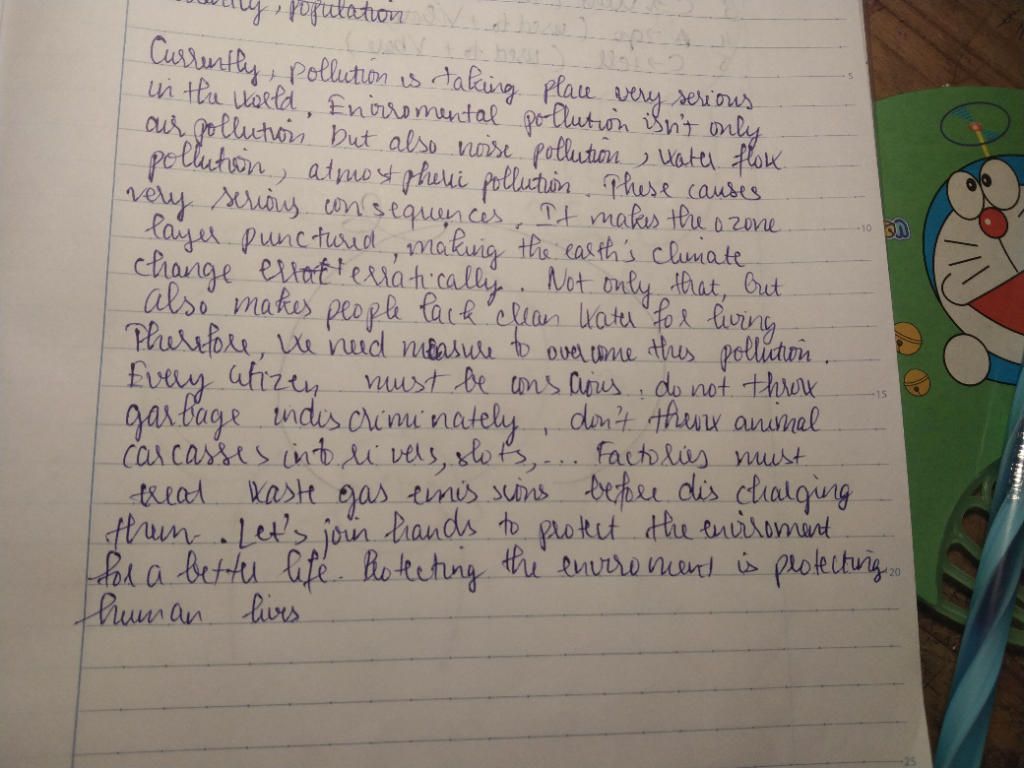 population
Currently, pollution is taking place very serious
in the world. Enviromental pollution isn't only
air pollution but also noise pollution, water flow
pollution, atmospheric pollution. These causes
very serious consequences. It makes the ozone
layer punctured, making the earth's climate
change erratically. Not only that, but
also makes people lack clean water for living
Therefore, we need measure to overcome this pollution.
Every citizen must be conscious, do not throw
garbage indiscriminately, don't throw animal
carcasses into rivers, slots,... Factories must
treat waste gas emissions before discharging
them. Let's join hands to protect the enviroment
for a better life. Protecting the enviroment is protecting
human lives
5
10
15
20
25